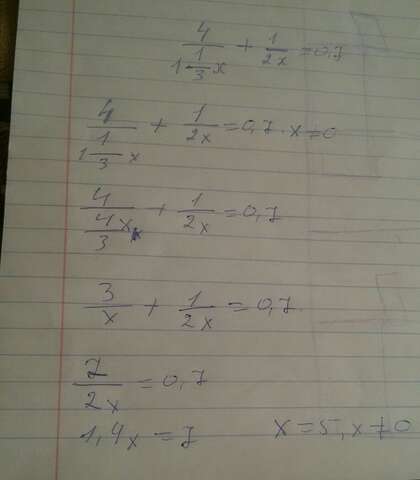 4/(1 1/3 x) + 1/(2x) = 0,7
4/(1 1/3 x) + 1/(2x) = 0,7. x ≠ 0
4/(4/3 x) + 1/(2x) = 0,7
3/x + 1/(2x) = 0,7.
7/(2x) = 0,7
1,4x = 7 x = 5, x ≠ 0